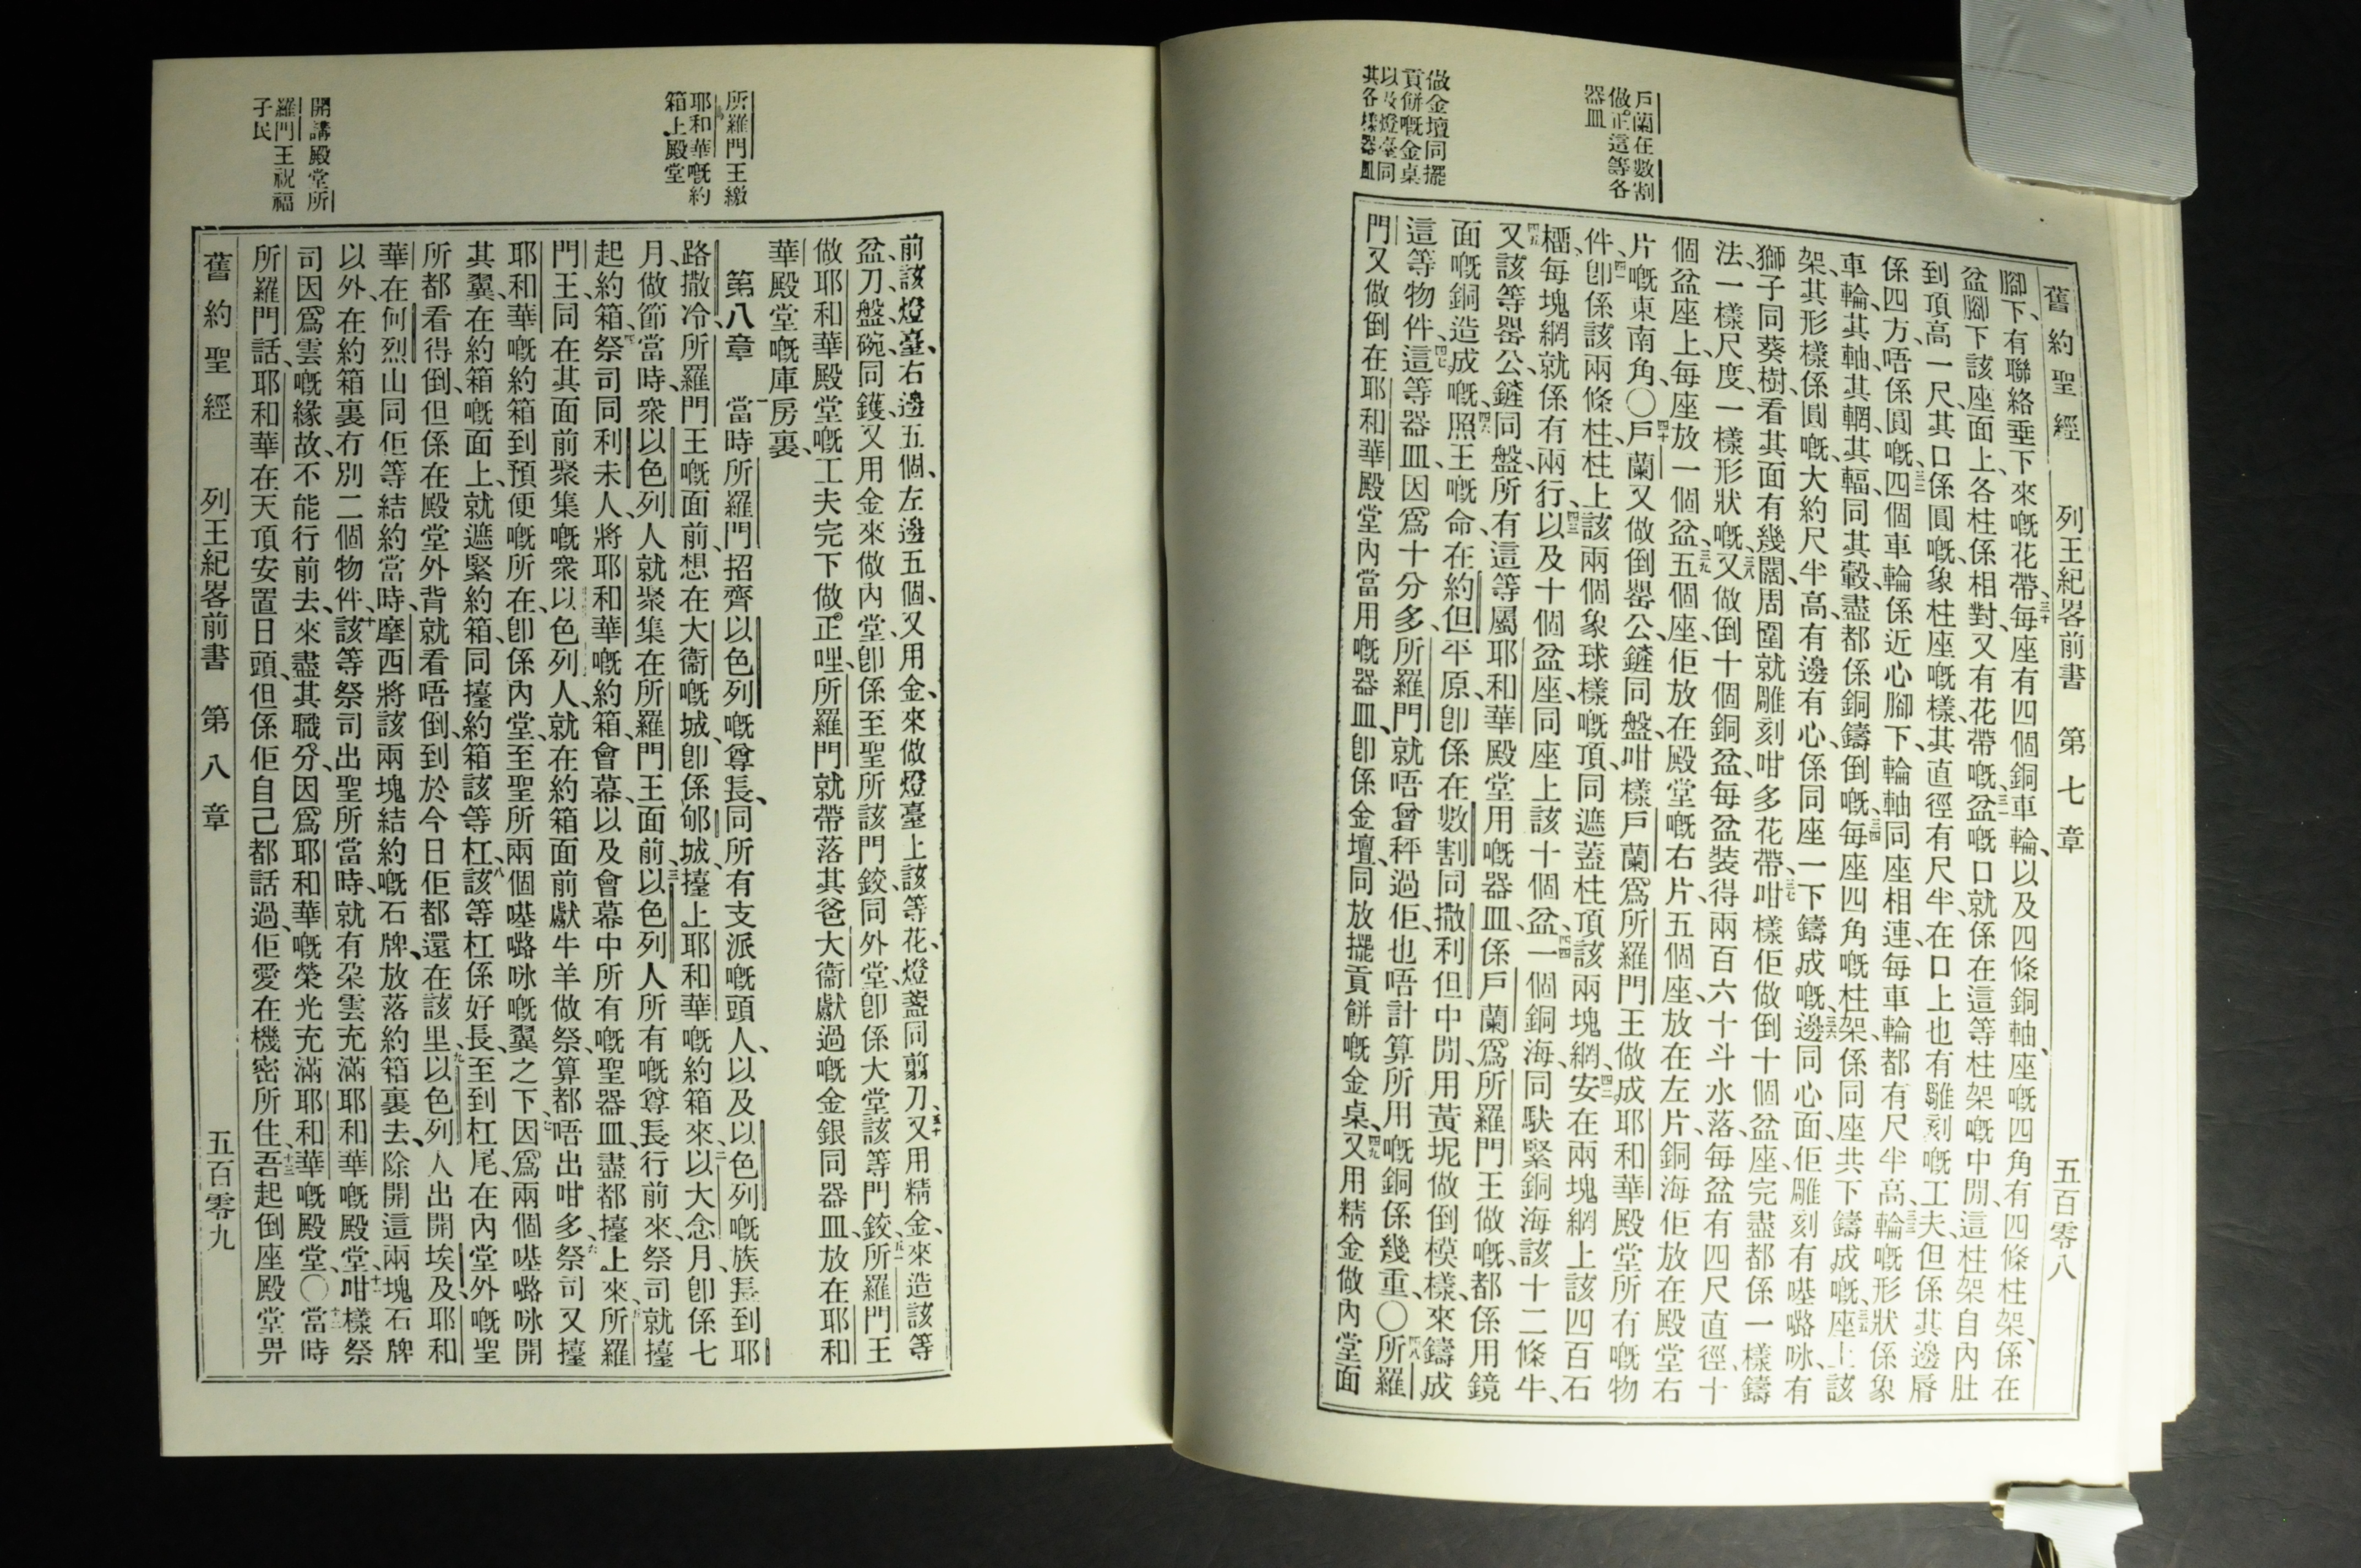 舊約聖經 列王紀畧前書 第七章 五百零八
戶蘭在數割
做正這等各
器皿
做金壇同擺
貢餅嘅金桌
以及燈臺同
其各樣器皿
腳下、有聯絡垂下來嘅花帶、三十每座有四個銅車輪、以及四條銅軸、座嘅四角有四條柱架、係在
盆腳下該座面上、各柱係相對、又有花帶嘅、三一盆嘅口就係在這等柱架嘅中閒、這柱架自內肚
到頂高一尺、其口係圓嘅、象柱座嘅樣、其直徑有尺半、在口上也有雕刻嘅工夫、但係其邊脣
係四方、唔係圓嘅、三二四個車輪係近心腳下、輪軸同座相連、每車輪都有尺半高、三三輪嘅形狀係象
車輪、其軸、其輞、其輻、同其轂、盡都係銅鑄倒嘅、三四每座四角嘅柱架、係同座共下鑄成嘅、三五座上該
架、其形樣係圓嘅、大約尺半高、有邊有心、係同座一下鑄成嘅、三六邊同心面、佢雕刻有𠹌嚕咏、有
獅子同葵樹、看其面有幾闊、周圍就雕刻咁多花帶、三七咁樣佢做倒十個盆座、完盡都係一樣鑄
法、一樣尺度、一樣形狀嘅、三八又做倒十個銅盆、每盆裝得兩百六十斗水落、每盆有四尺直徑、十
個盆座上、每座放一個盆、三九五個座、佢放在殿堂嘅右片、五個座、放在左片、銅海佢放在殿堂右
片嘅東南角、〇四十戶蘭又做倒罌公、鏟同盤、咁樣戶蘭爲所羅門王做成耶和華殿堂所有嘅物
件、四一卽係該兩條柱、柱上該兩個象球樣嘅頂、同遮蓋柱頂該兩塊網、四二安在兩塊網上該四百石
櫺、每塊網就係有兩行、四三以及十個盆座、同座上該十個盆、四四一個銅海、同馱緊銅海該十二條牛、
四五又該等罌公、鏟同盤、所有這等屬耶和華殿堂用嘅器皿、係戶蘭爲所羅門王做嘅、都係用鏡
面嘅銅造成嘅、四六照王嘅命、在約但平原、卽係在數割同撒利但中閒、用黃坭做倒模樣、來鑄成
這等物件、四七這等器皿、因爲十分多、所羅門就唔曾秤過佢、也唔計算所用嘅銅係幾重、〇四八所羅
門又做倒在耶和華殿堂內當用嘅器皿、卽係金壇、同放擺貢餅嘅金桌、四九又用精金做內堂面
所羅門王繳
耶和華嘅約
箱上殿堂
開講殿堂所
羅門王祝福
子民
前該燈臺、右邊五個、左邊五個、又用金來做燈臺上該等花、燈盞同剪刀、五十又用精金、來造該等
盆、刀、盤、碗、同鑊、又用金來做內堂、卽係至聖所該門鉸、同外堂、卽係大堂該等門鉸、五一所羅門王
做耶和華殿堂嘅工夫完下做正哩、所羅門就帶落其爸大衞獻過嘅金銀同器皿、放在耶和
華殿堂嘅庫房裏、
第八章 一當時所羅門招齊以色列嘅尊長、同所有支派嘅頭人、以及以色列嘅族長、到耶
路撒冷、所羅門王嘅面前、想在大衞嘅城、卽係郇城、擡上耶和華嘅約箱來、二以大念月、卽係七
月、做節當時、衆以色列人就聚集在所羅門王面前、三以色列人所有嘅尊長行前來、祭司就擡
起約箱、四祭司同利未人、將耶和華嘅約箱、會幕、以及會幕中所有嘅聖器皿、盡都擡上來、五所羅
門王、同在其面前聚集嘅衆以色列人、就在約箱面前獻牛羊做祭、算都唔出咁多、六祭司又擡
耶和華嘅約箱到預便嘅所在、卽係內堂、至聖所兩個𠹌嚕咏嘅翼之下、七因爲兩個𠹌嚕咏開
其翼、在約箱嘅面上、就遮緊約箱、同擡約箱該等杠、八該等杠係好長、至到杠尾、在內堂外嘅聖
所都看得倒、但係在殿堂外背、就看唔倒、到於今日佢都還在該里、九以色列人出開埃及、耶和
華在何烈山同佢等結約當時、摩西將該兩塊結約嘅石牌、放落約箱裏去、除開這兩塊石牌
以外、在約箱裏冇別二個物件、十該等祭司出聖所當時、就有朶雲充滿耶和華嘅殿堂、十一咁樣祭
司因爲雲嘅緣故、不能行前去、來盡其職分、因爲耶和華嘅榮光充滿耶和華嘅殿堂、〇十二當時
所羅門話、耶和華在天頂安置日頭、但係佢自己都話過、佢愛在機密所住、十三吾起倒座殿堂畀
舊約聖經 列王紀畧前書 第八章 五百零九